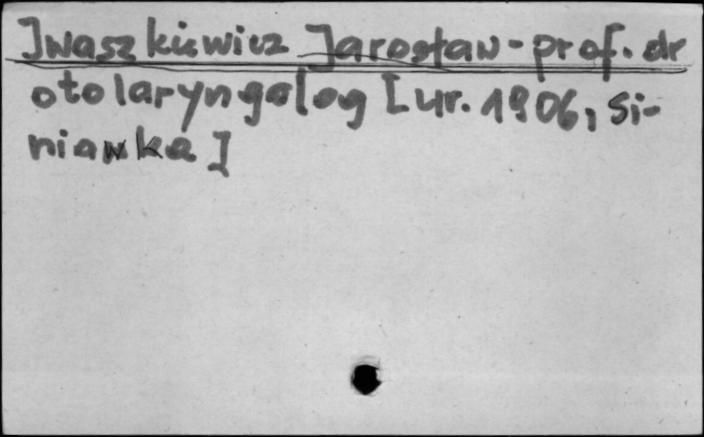 Iwaszkiewicz Jarosław - prof. dr
otolaryngolog [ur. 1906, Si-
niawka]